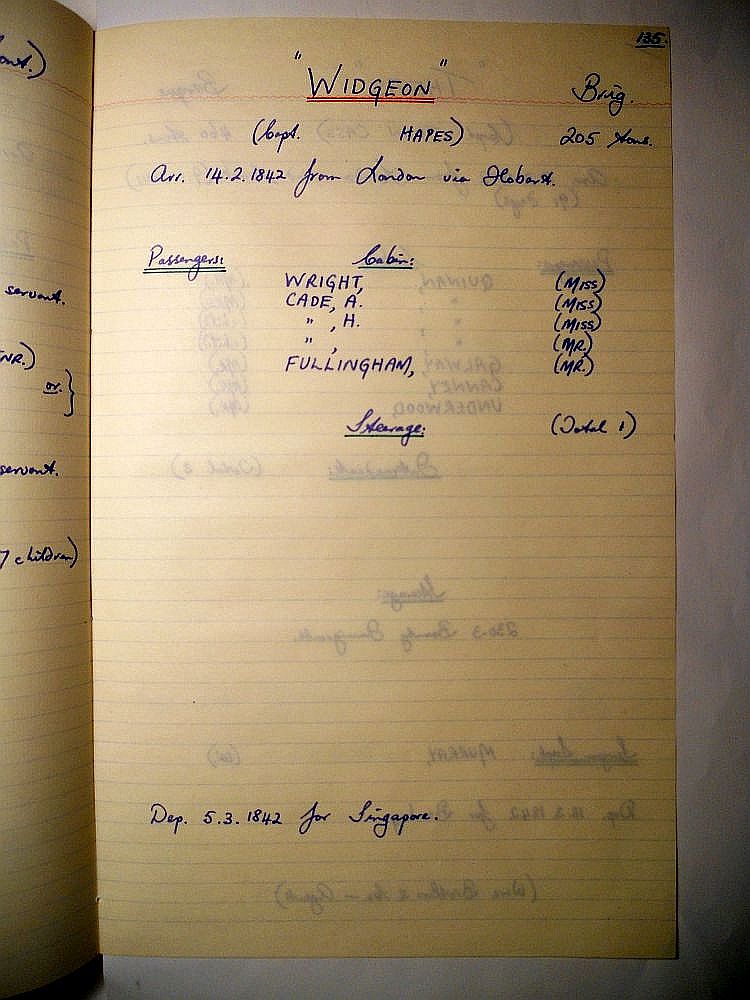 135.
"WIDGEON" Brig.
(Capt. HAPES) 205 tons.
Arr. 14.2.1842 from London via Hobart.
Passengers: Cabin:
WRIGHT, (MISS)
CADE, A. (MISS)
" , H. (MISS)
" , (MR.)
FULLINGHAM, (MR.)
Steerage: (Total 1)
Dep. 5.3.1842 for Singapore.
servant.
or. }
servant.
7 children)